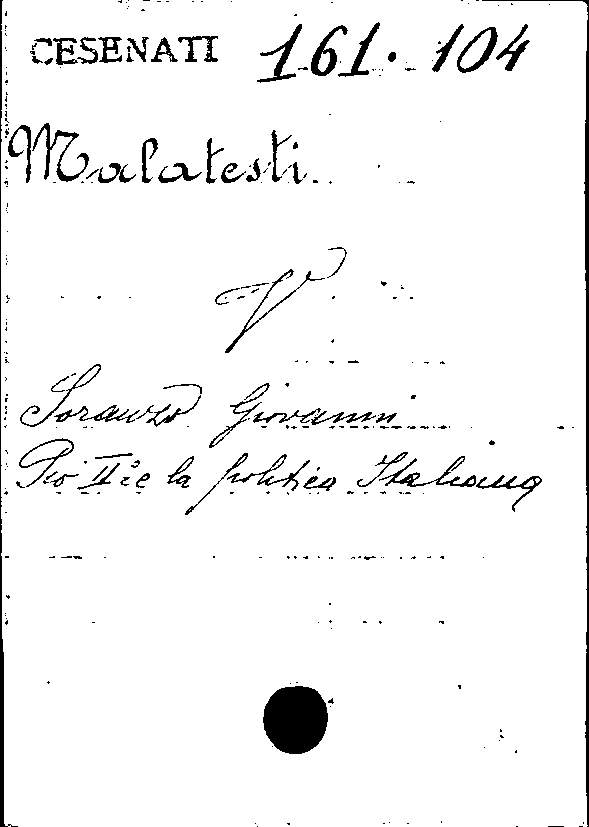 CESENATI 161.104
Malatesti
V
Soranzo Giovanni
Pio II° e la politica Italiana